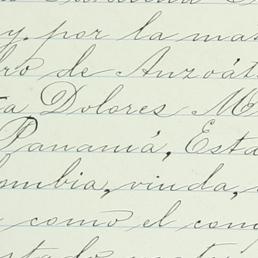 y. por la ma
ro de Anzoát
a Dolores M
Panamá, Esta
lombia, viuda,
como el con